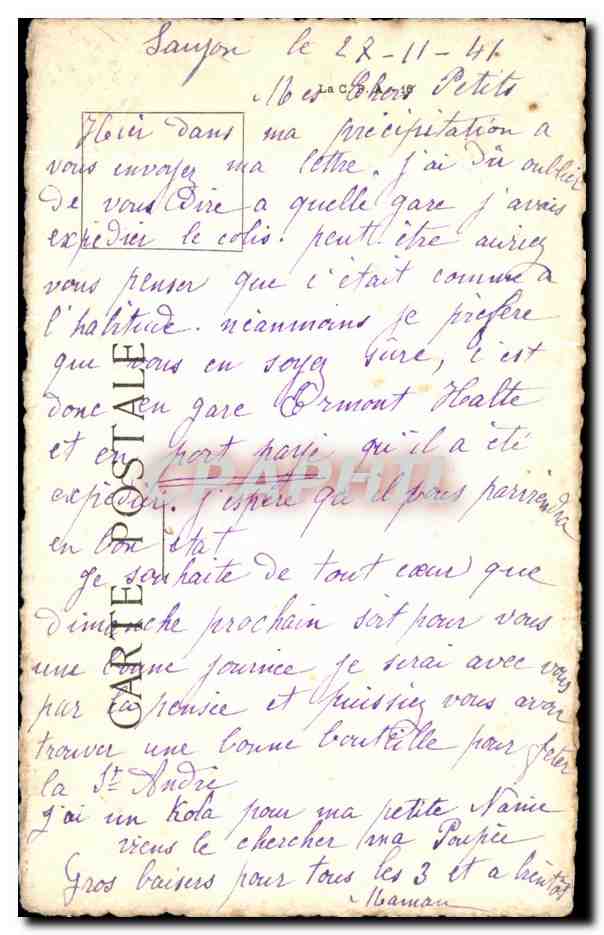 Saujon le 27-11-41
La C. P. A.
Mes Chers Petits
Hier dans ma précipitation a
vous envoyez ma lettre. j'ai dû oublier
de vous Dire a quelle gare j'avais
expédier le colis. peut être auriez
vous penser que c'était comme a
l'habitude. néanmoins je préfère
que vous en soyez sûre, c'est
donc en gare Ermont Halte
et en port payé qu'il a été
expédier. j'espère qu'il vous parviendra
en bon état
Je souhaite de tout cœur que
dimanche prochain soit pour vous
une bonne journée je serai avec vous
par la pensée et puissiez vous avoir
trouver une bonne bouteille pour fêter
la St André
j'ai un Kola pour ma petite Nanie
viens le chercher ma Poupée
Gros baisers pour tous les 3 et a bientôt
Maman
CARTE POSTALE
CPAPHIL